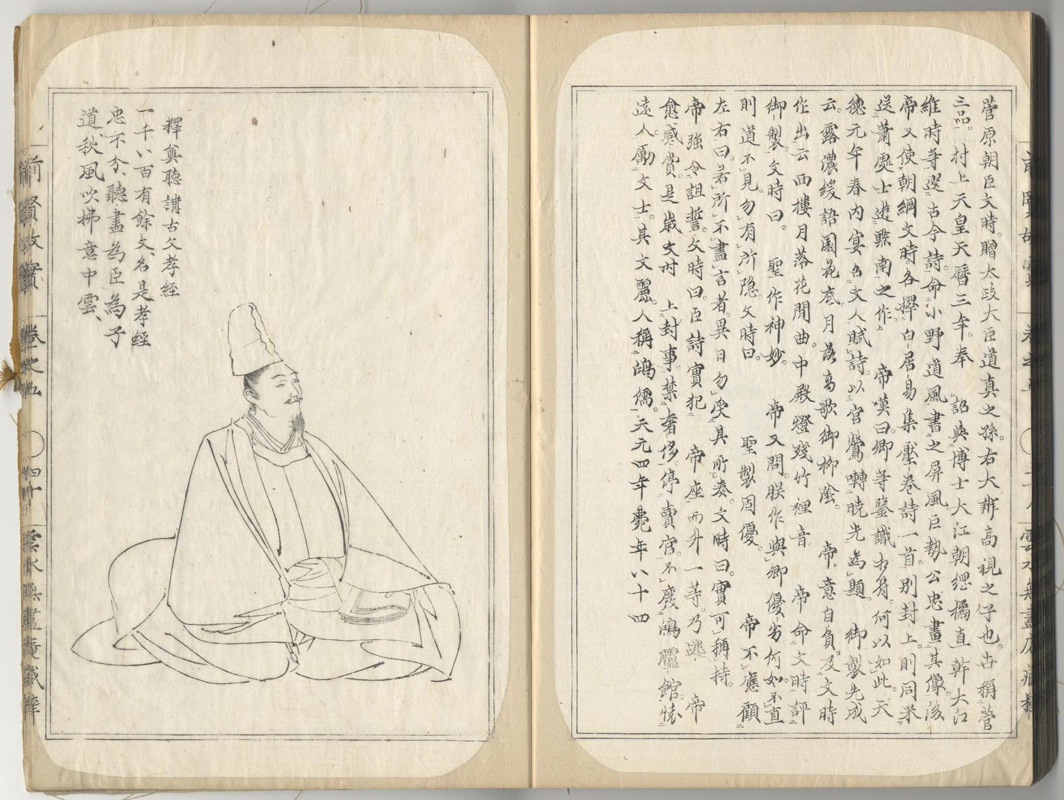 菅原朝臣文時。贈太政大臣道真之孫。右大辨高視之子也。古稱菅
三品。村上天皇天曆三年。奉 詔與博士大江朝綱橘直幹大江
維時等。選古今詩。命小野道風書之屏風。巨勢公忠畫其像。後
帝又使朝綱文時各擇白居易集壓卷詩一首。別封上。則同采
送蕭處士遊黔南之作。 帝嘆曰。卿等鑒識相符。何以如此。天
德元年春內宴。召文人賦詩。以宮鶯囀曉光為題。 御製先成
云。露濃緩語園花底。月落高歌御柳陰。 帝意自負。及文時
作出云。西樓月落花間曲。中殿燈殘竹裡音。 帝命文時評
御製。文時曰。 聖作神妙。 帝又問。朕作與卿優劣何如。不直
則道不見。勿有所隱。文時曰 聖製固優。 帝不應。顧
左右曰。若所不盡言者。異日勿受其所奏。文時曰。實可稱持。
帝強令詛誓。文時曰。臣詩實犯 帝座而升一等。乃逃。 帝
愈感賞。是歲文時 上封事。禁奢侈。停賣官。不廢鴻臚館。懷
遠人。勵文士。其文麗。人稱鴻儒。天元四年薨。年八十四
釋奠聽講古文孝經
一千八百有餘文名是孝經
忠不分聽盡為臣為子
道秋風吹拂意中雲
前賢故實 卷之五 〇 四十 雲水無盡庵藏梓